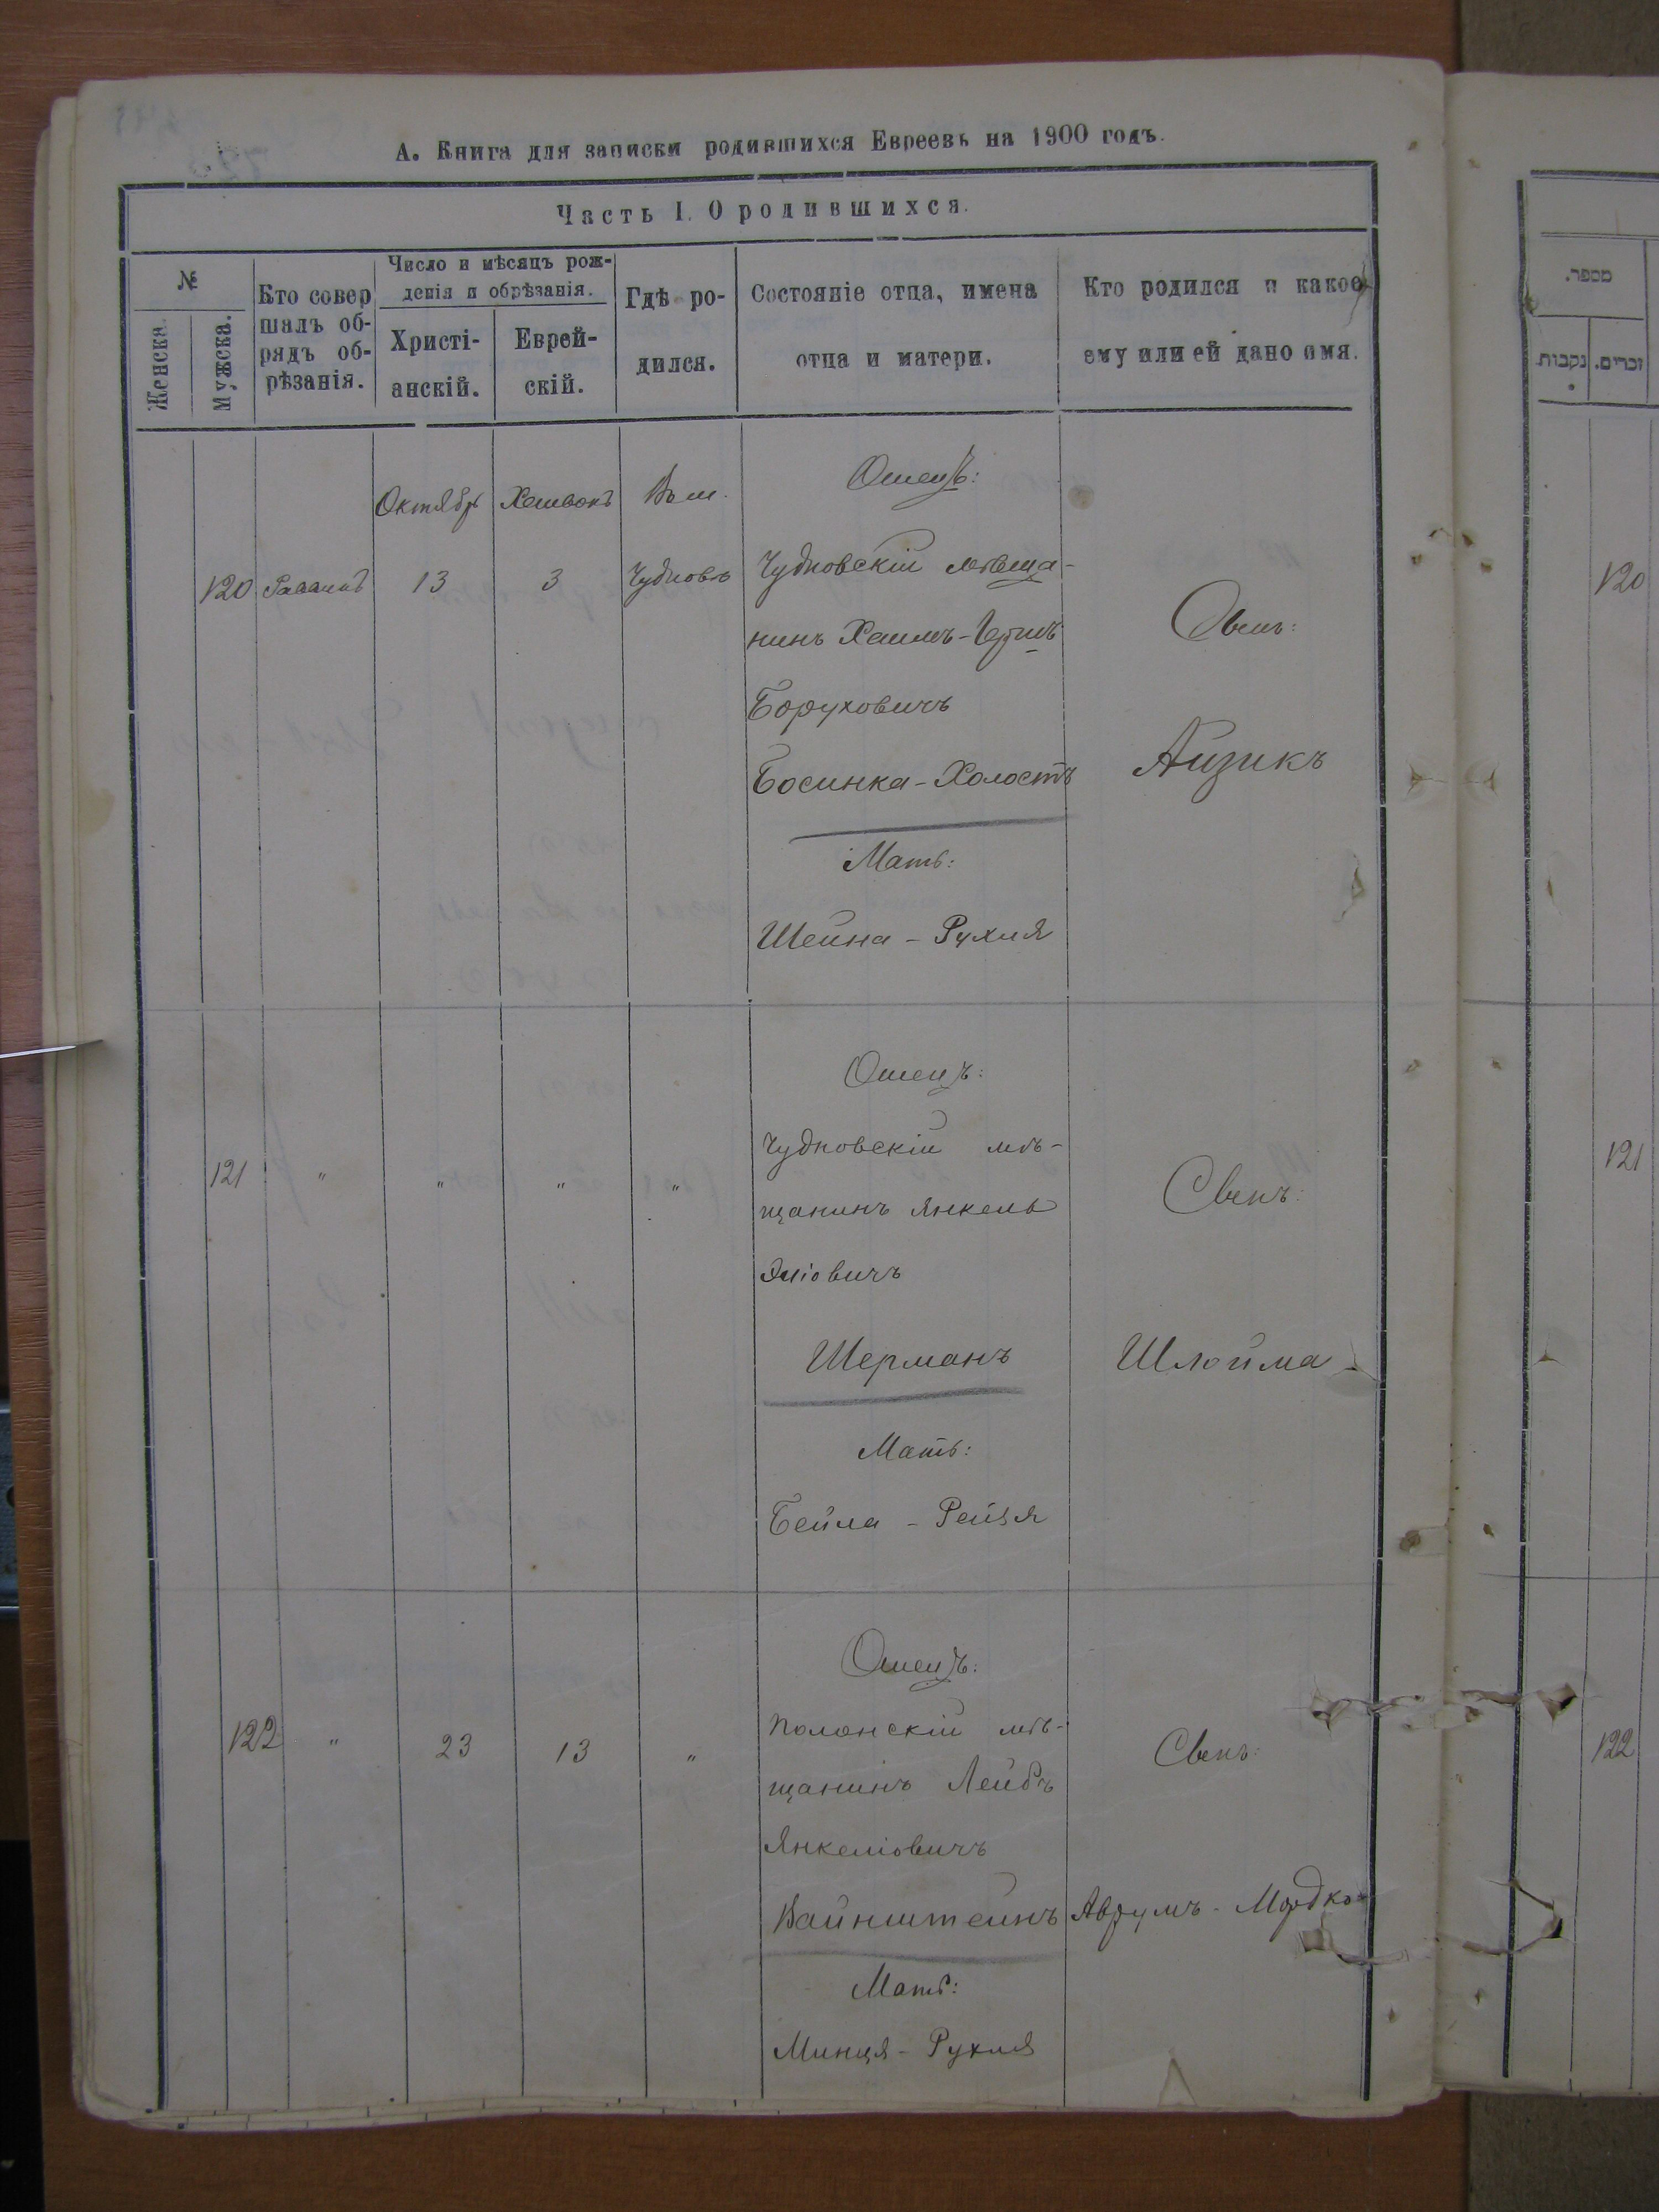 А. Книга для записки родившихся Евреевъ на 1900 годъ.
Часть I. О родившихся.
№
Женска.
Мужска.
Кто совер
шалъ об-
рядъ об-
рѣзанія.
Число и мѣсяцъ рож-
денія и обрѣзанія.
Христі-
анскій.
Еврей-
скій.
Гдѣ ро-
дился.
Состояніе отца, имена
отца и матери.
Кто родился и какое
ему или ей дано имя.
מספר.
נקבות
זכרים.
Октябрь Хешвонъ Въ м.
Отецъ:
120 13 3 Чудновъ
Чудновскій мѣща-
нинъ Хаимъ-Гершъ
Боруховичъ
Босинка-Холостъ
Мать:
Шейна - Рухля
Сынъ:
Айзикъ
120
121 " " " "
Отецъ:
Чудновскій мѣ-
щанинъ Янкель
Эліовичъ
Шерманъ
Мать:
Бейла - Рейзя
Сынъ:
Шлойма
121
122 " 23 13 "
Отецъ:
Полонскій мѣ-
щанинъ Лейбъ
Янкеліовичъ
Вайнштейнъ
Мать:
Минця - Рухля
Сынъ:
Аврумъ - Мордко
122